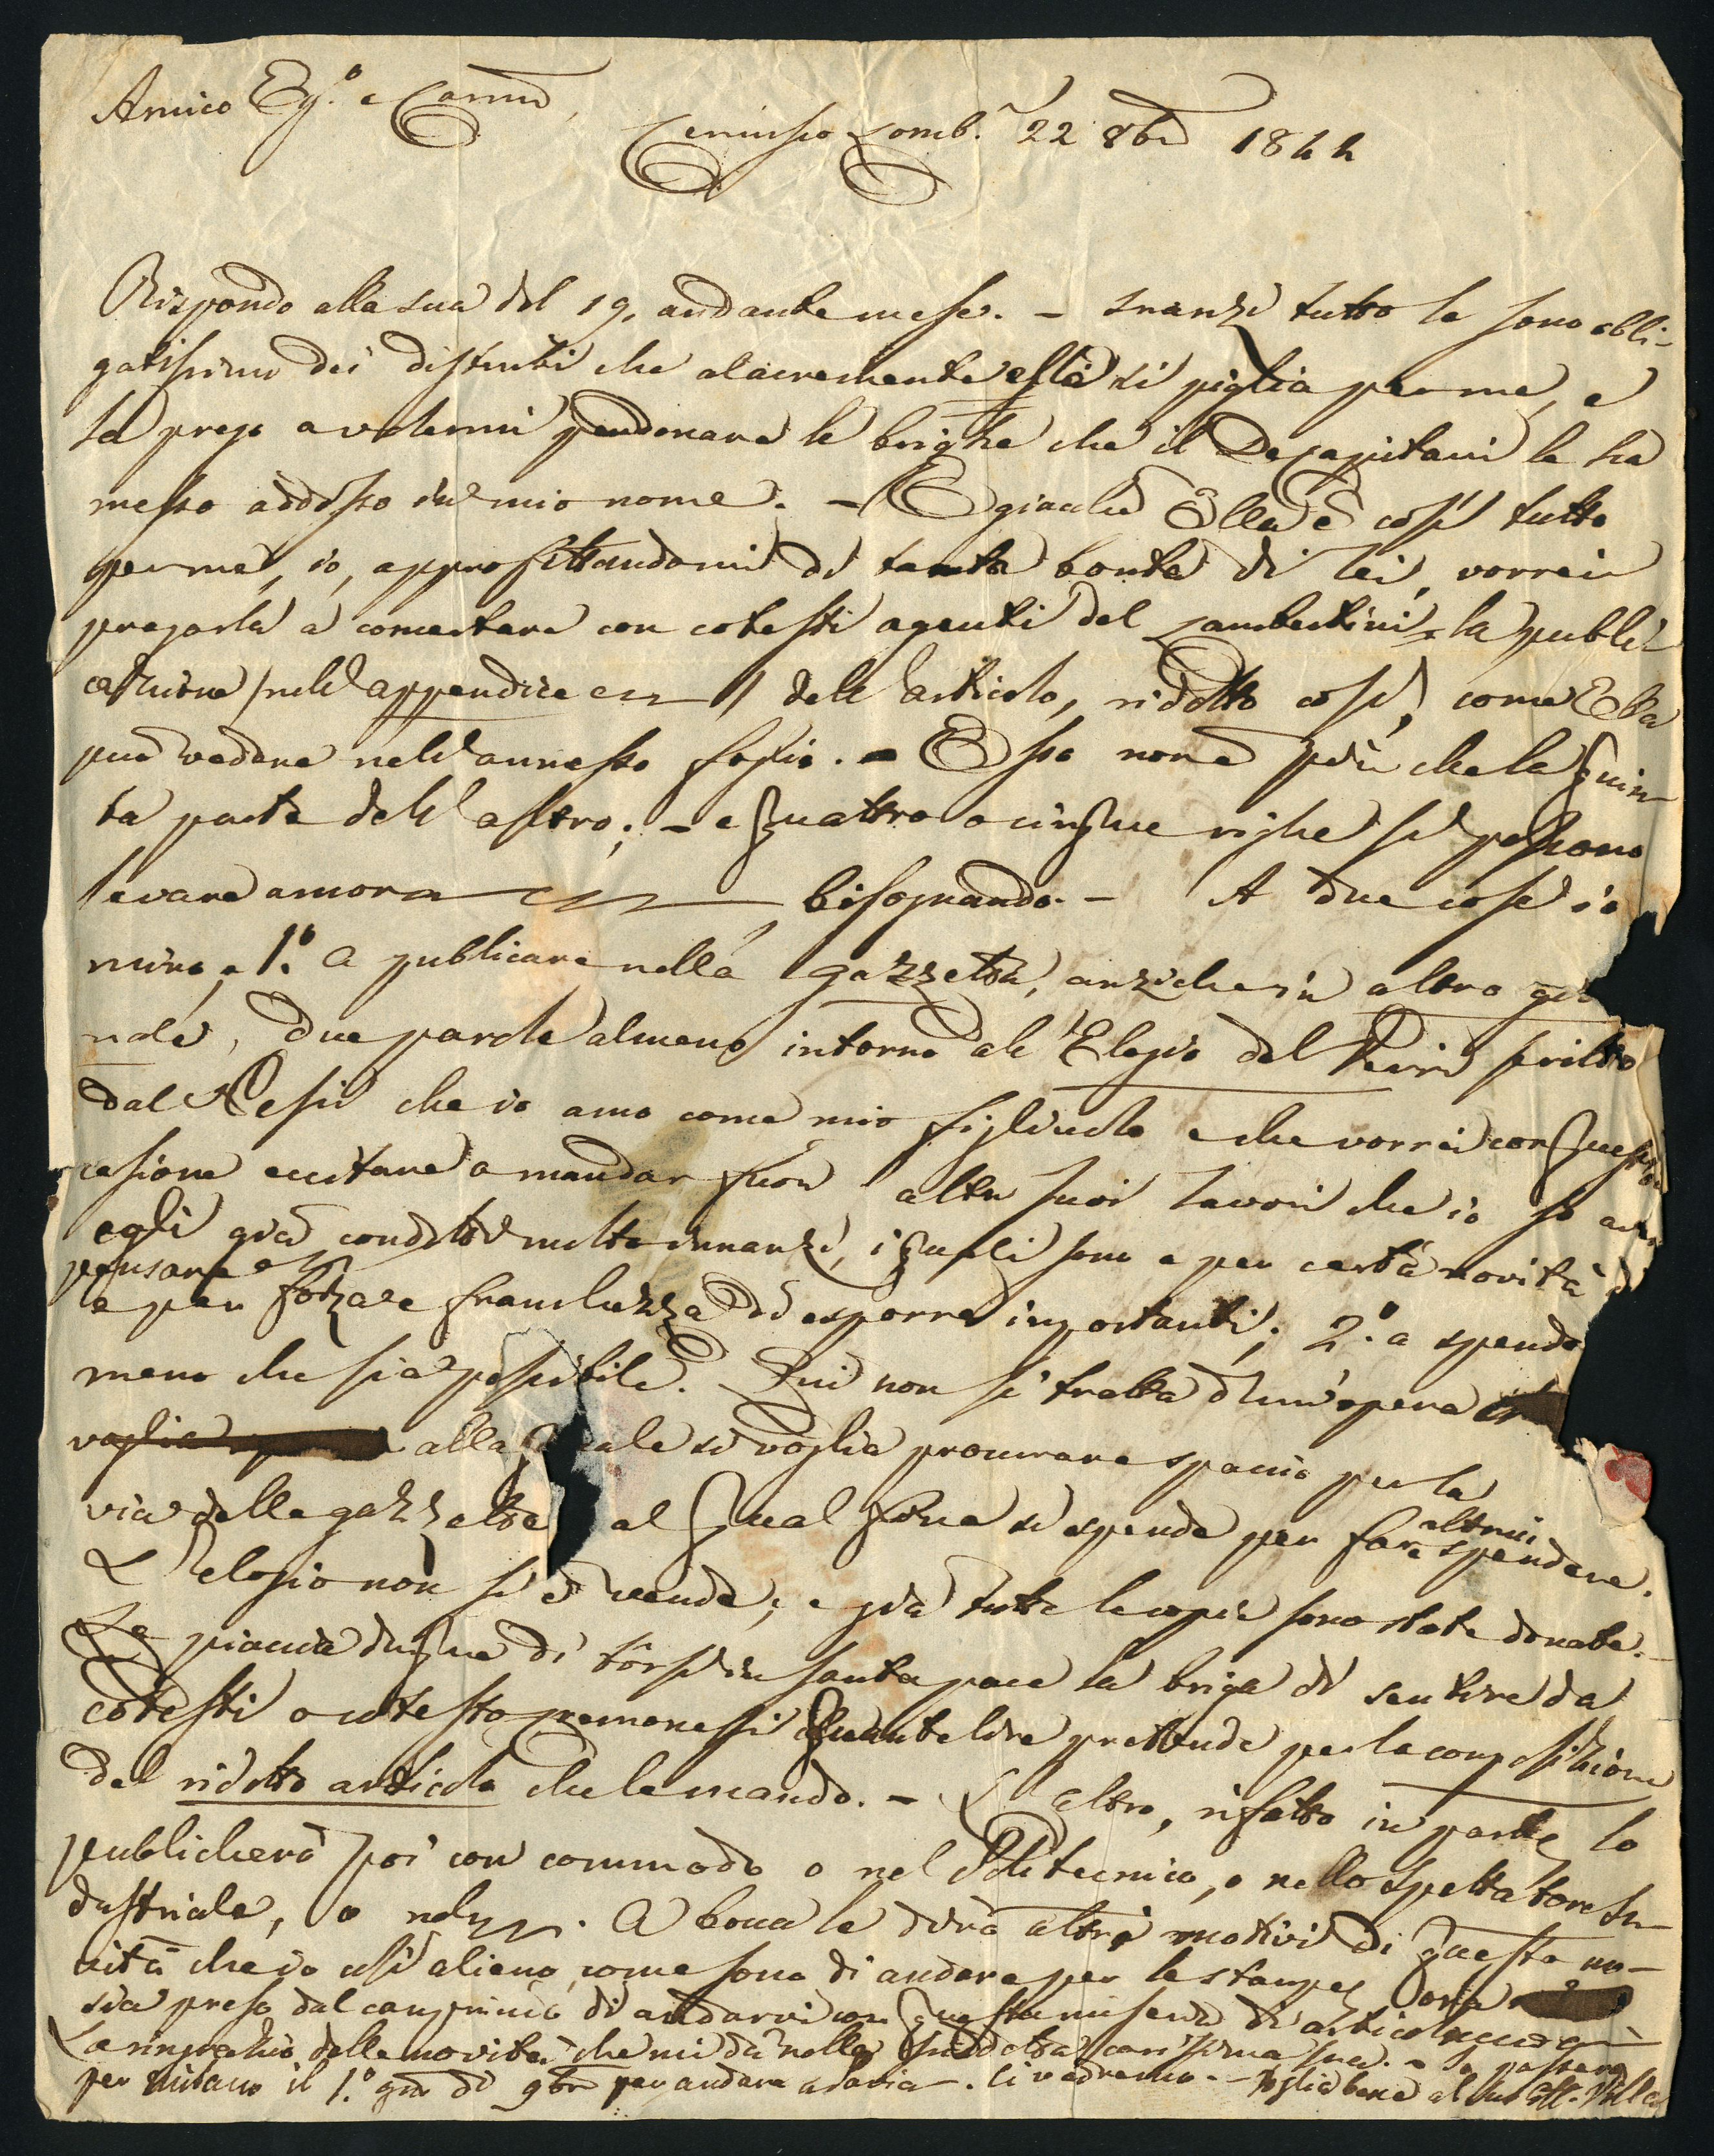 Amico Eg.º e Carmo,
Cernusco Lomb.º 22 8bre 1844
Rispondo alla sua del 19. andante mese. — Inanzi tutto le sono obbli-
gatissimo dei disturbi che alacremente ella si piglia per me, e
la prego a volermi perdonare le brighe che il Decapitani le ha
messo addosso in mio nome. — E giacchè Ella è così tutto
per me, io, approfittandomi di tanta bontà di lei, vorrei
pregarla a concertare con cotesti agenti del Lambertini la publi-
cazione (nell'appendice) dell'articolo, ridotto così, come Ella
può vedere nell'annesso foglio. — Esso non è più che la quin-
ta parte dell'altro; — e quattro o cinque righe si possono
levare ancora bisognando. — A due cose io
miro, 1.º a publicare nella gazzetta, anzichè in altro gior
nale, due parole almeno intorno all'Elogio del Verri scritto
dal Resi che io amo come mio figliuolo e che vorrei con questa
casione eccitare a mandar fuori altri suoi lavori che io so
egli già condotti molto innanzi, i quali sono e per certa novità di
pensare
e per forza e franchezza di esporre importanti; 2.º a spendere
meno che sia possibile. Qui non si tratta d'un'opera
voglia alla quale si voglia procurare spaccio per la
via delle gazzette al qual fine si spende per fare altrui spendere.
L'elogio non si vende; e già tutte le copie sono state donate. —
Le piaccia dunque di tôrsi in santa pace la briga di sentire da
cotesti o cotesto cremonesi quante lire prettende per la composizione
del ridotto articolo che le mando. — L'altro, rifatto in parte, lo
publicherò poi con commodo o nel Politecnico, o nello Spettatore In-
dustriale, o nel . A bocca le dirò altri motivi di questa no-
vità che io così alieno come sono di andare per le stampe, ora
sia preso dal capriccio di andarvi con questa miseria di articoluccio
La ringrazio delle novità che mi dà nella suddetta carissima sua. — Io passerò
per Milano il 1.º gno di 9bre per andare a Pavia. Ci vedremo. — Voglia bene al suo